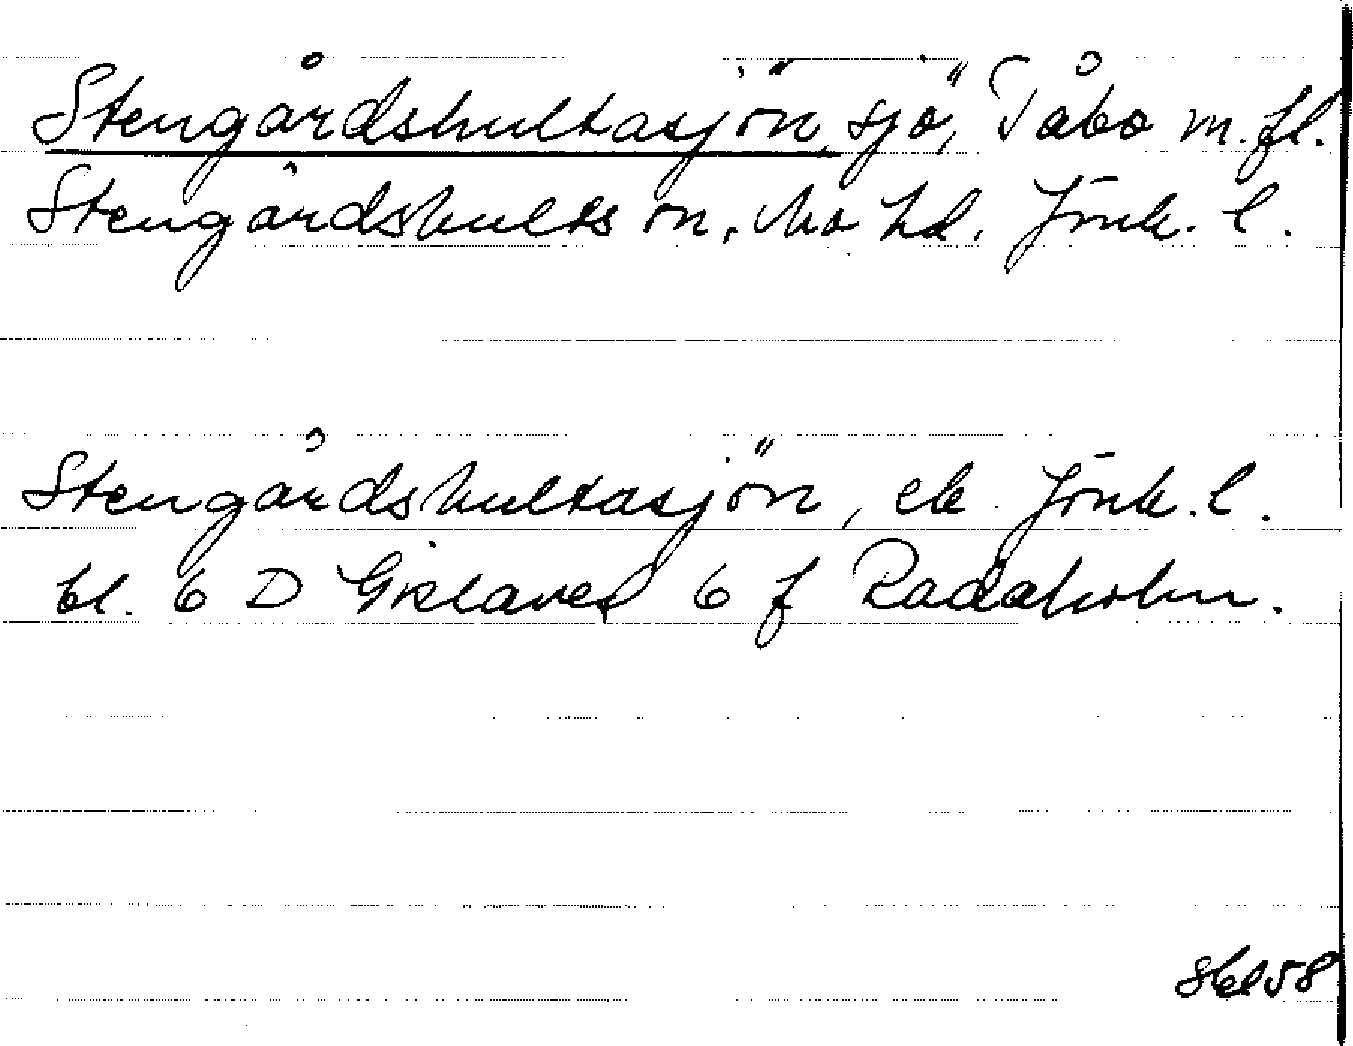 Stengårdshultasjön, sjö, Tåbo m.fl.
Stengårdshults sn, Mo hd. Jönk. l.
Stengårdshultasjön, ek Jönk. l.
bl. 6 D Gislaved 6 f Radaholm.